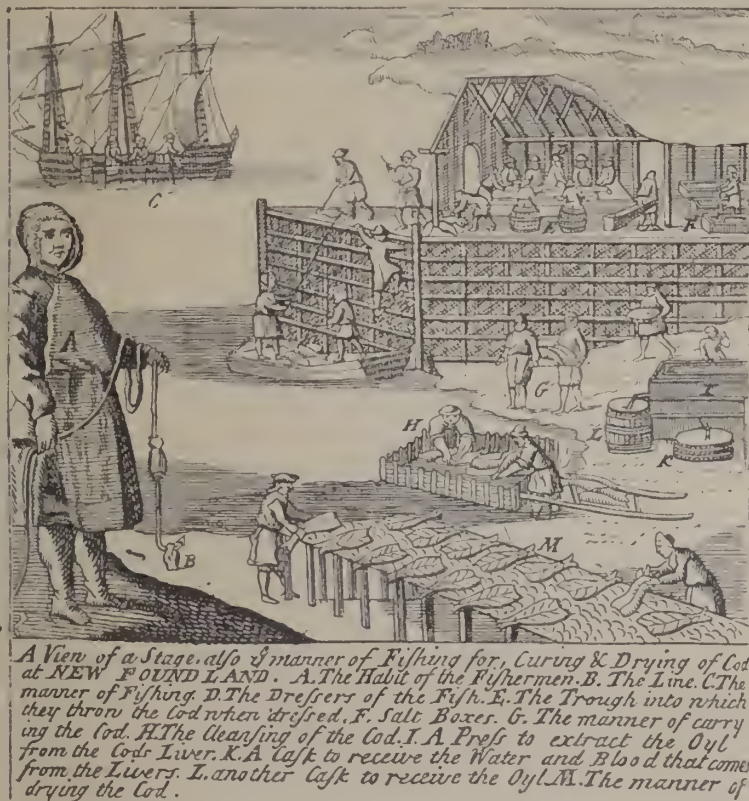 C
A
B
G
H
I
L
K
M
A View of a Stage. also yͤ manner of Fiſhing for, Curing & Drying of Cod
at NEW FOUND LAND. A. The Habit of the Fiſhermen. B. The Line. C. The
manner of Fiſhing. D. The Dreſsers of the Fiſh. E. The Trough into which
they throw the Cod when dreſsed. F. Salt Boxes. G. The manner of carry
ing the Cod. H. The Cleanſing of the Cod. I. A Preſs to extract the Oyl
from the Cods Liver. K. A Caſk to receive the Water and Blood that comes
from the Livers. L. another Caſk to receive the Oyl. M. The manner of
drying the Cod.